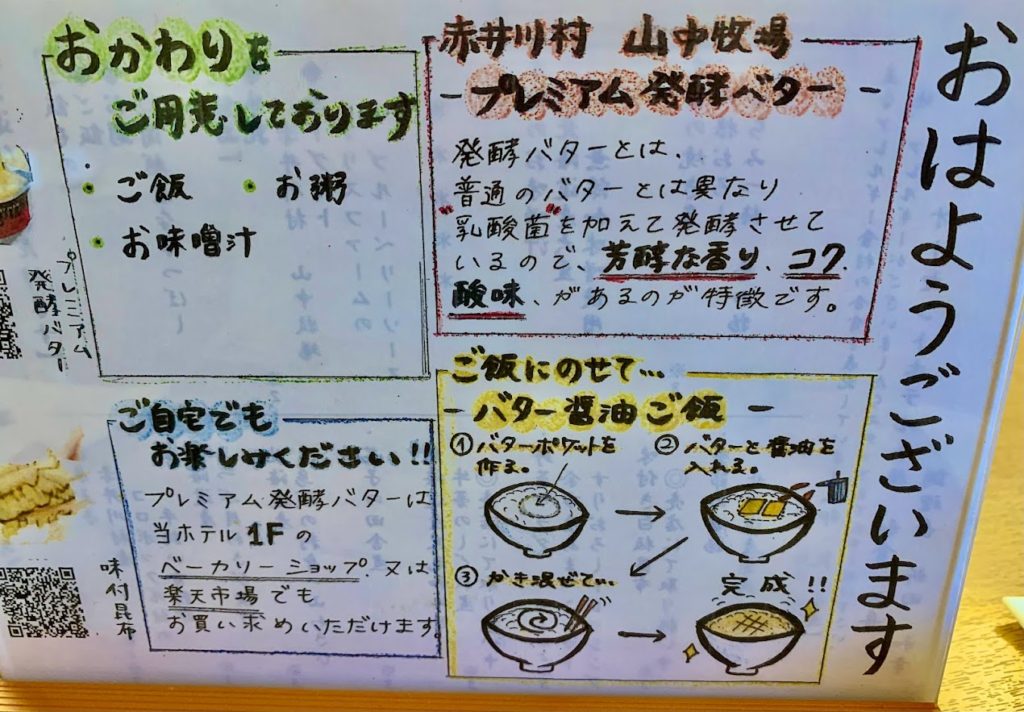 おはようございます
赤井川村 山中牧場
-プレミアム発酵バター-
発酵バターとは、
普通のバターとは異なり
乳酸菌を加えて発酵させて
いるので、芳醇な香り、コク、
酸味、があるのが特徴です。
おかわりを
ご用意しております
・ご飯 ・お粥
・お味噌汁
ご飯にのせて...
-バター醤油ご飯-
①バターポケットを
作る。
②バターと醤油を
入れる。
③かき混ぜて...
完成!!
ご自宅でも
お楽しみください!!
プレミアム発酵バターは
当ホテル1Fの
ベーカリーショップ、又は
楽天市場でも
お買い求めいただけます。
プレミアム
発酵バター
味付昆布